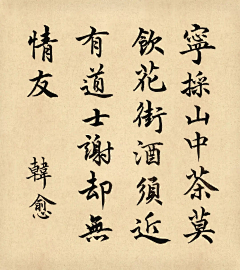 寧採山中茶莫
飲花街酒須近
有道士謝却無
情友
韓愈